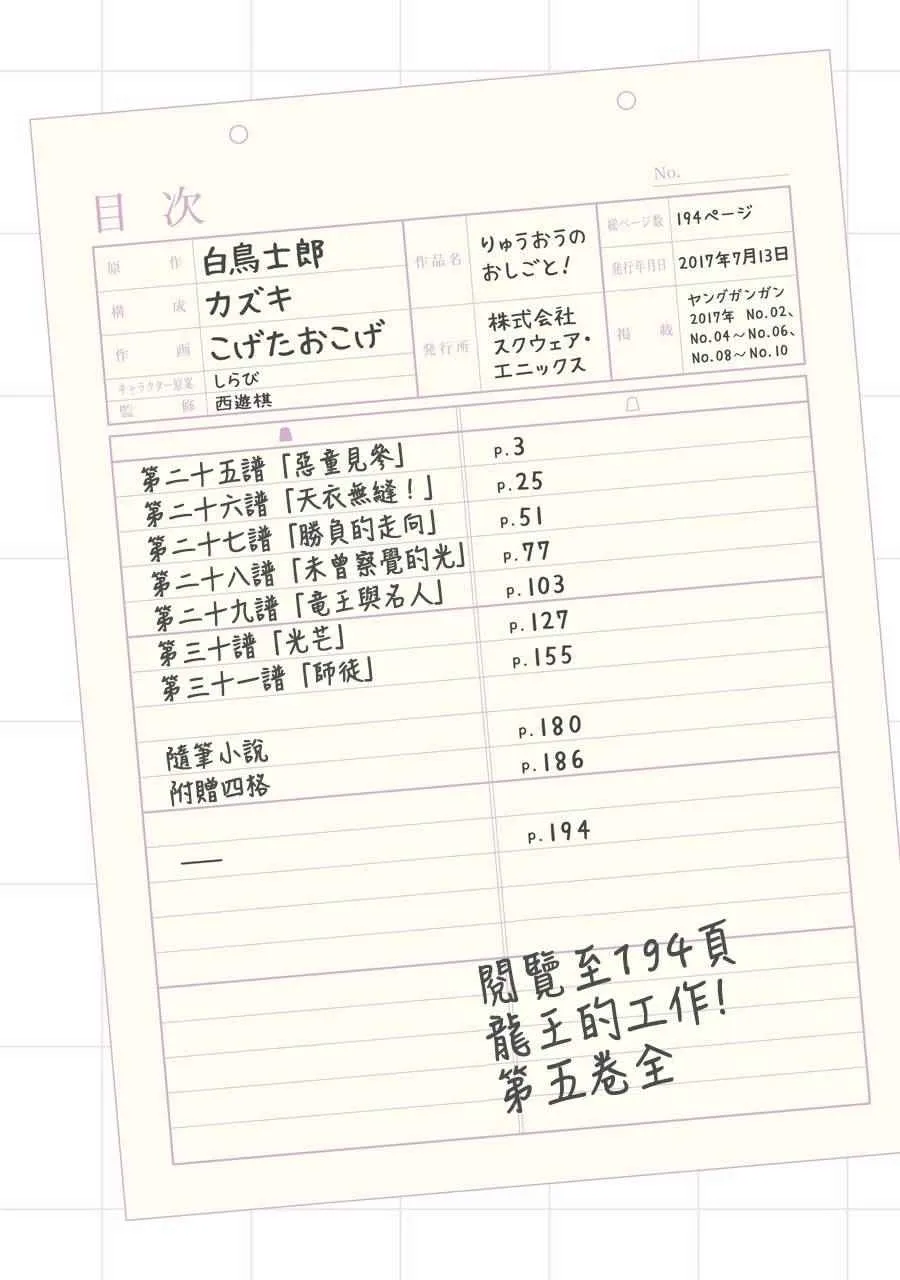 No.
目次
原作 白鳥士郎
構成 カズキ
作画 こげたおこげ
キャラクター原案 しらび
監修 西遊棋
作品名 りゅうおうの
おしごと!
発行所 株式会社
スクウェア・
エニックス
総ページ数 194ページ
発行年月日 2017年7月13日
掲載 ヤングガンガン
2017年 No.02、
No.04～No.06、
No.08～No.10
第二十五譜「惡童見參」 p.3
第二十六譜「天衣無縫！」 p.25
第二十七譜「勝負的走向」 p.51
第二十八譜「未曾察覺的光」 p.77
第二十九譜「竜王與名人」 p.103
第三十譜「光芒」 p.127
第三十一譜「師徒」 p.155
隨筆小說 p.180
附贈四格 p.186
— p.194
閱覽至194頁
龍王的工作!
第五卷全